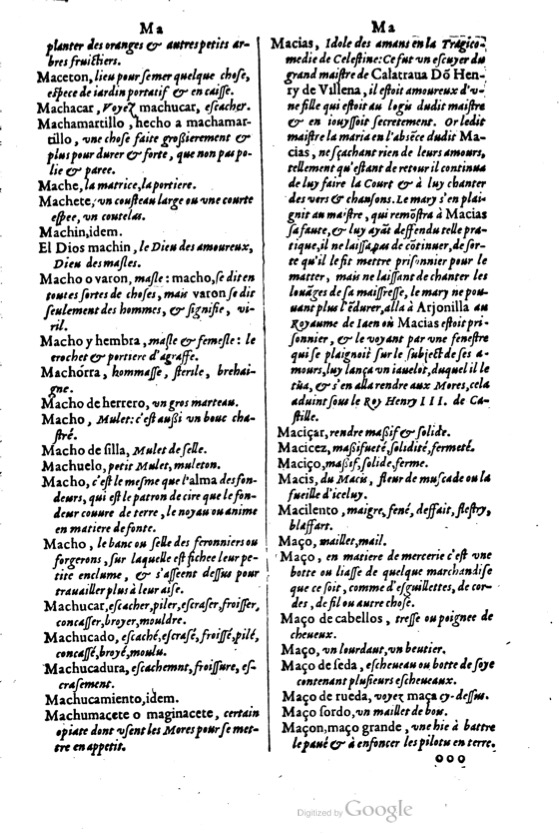 Ma
planter des oranges & autres petits ar-
bres fruictiers.
Maceton, lieu pour semer quelque chose,
espece de iardin portatif & en caisse.
Machacar, Voyez machucar, escacher.
Machamartillo, hecho a machamar-
tillo, vne chose faite großierement &
plus pour durer & forte, que non pas po-
lie & paree.
Mache, la matrice, la portiere.
Machete, vn cousteau large ou vne courte
espee, vn coutelas.
Machin, idem.
El Dios machin, le Dieu des amoureux,
Dieu des masles.
Macho o varon, masle: macho, se dit en
toutes sortes de choses, mais varon se dit
seulement des hommes, & signifie, vi-
ril.
Macho y hembra, masle & femelle: le
crochet & portiere d'agraffe.
Machorra, hommasse, sterile, brehai-
gne.
Macho de herrero, vn gros marteau.
Macho, Mulet: c'est außi vn bouc cha-
stré.
Macho de silla, Mulet de selle.
Machuelo, petit Mulet, muleton.
Macho, c'est le mesme que l'alma des fon-
deurs, qui est le patron de cire que le fon-
deur couure de terre, le noyau ou anime
en matiere de fonte.
Macho, le banc ou selle des feronniers ou
forgerons, sur laquelle est fichee leur pe-
tite enclume, & s'asseent dessus pour
trauailler plus à leur aise.
Machucar, escacher, piler, escraser, froisser,
concasser, broyer, mouldre.
Machucado, escaché, escrasé, froissé, pilé,
concassé, broyé, moulu.
Machucadura, escachemnt, froissure, es-
crasement.
Machucamiento, idem.
Machumacete o maginacete, certain
opiate dont vsent les Mores pour se met-
tre en appetit.
Ma
Macias, Idole des amans en la Tragico-
medie de Celestine: Ce fut vn escuyer du
grand maistre de Calatraua Dõ Hen-
ry de Villena, il estoit amoureux d'v-
ne fille qui estoit au logis dudit maistre
& en iouyssoit secretement. Or ledit
maistre la maria en l'absẽce dudit Ma-
cias, ne sçachant rien de leurs amours,
tellement qu'estant de retour il continua
de luy faire la Court & à luy chanter
des vers & chansons. Le mary s'en plai-
gnit au maistre, qui remõstra à Macias
sa faute, & luy ayãt deffendu telle pra-
tique, il ne laissa pas de cõtinuer, de sor-
te qu'il le fit mettre prisonnier pour le
matter, mais ne laissant de chanter les
louãges de sa maistresse, le mary ne pou-
uant plus l'ẽdurer, alla à Arjonilla au
Royaume de Iaen où Macias estoit pri-
sonnier, & le voyant par vne fenestre
qui se plaignoit sur le subiect de ses a-
mours, luy lança vn iauelot, duquel il le
tüa, & s'en alla rendre aux Mores, cela
aduint sous le Roy Henry III. de Ca-
stille.
Maciçar, rendre maßif & solide.
Macicez, maßifueté, solidité, fermeté.
Maciço, maßif, solide, ferme.
Macis, du Macis, fleur de muscade ou la
fueille d'iceluy.
Macilento, maigre, fené, deffait, flestry,
blaffart.
Maço, maillet, mail.
Maço, en matiere de mercerie c'est vne
botte ou liasse de quelque marchandise
que ce soit, comme d'esguillettes, de cor-
des, de fil ou autre chose.
Maço de cabellos, tresse ou poignee de
cheueux.
Maço, vn lourdaut, vn beutier.
Maço de seda, escheueau ou botte de soye
contenant plusieurs escheueaux.
Maço de rueda, voyez maça cy-dessus.
Maço sordo, vn maillet de bois.
Maçon, maço grande, vne hie à battre
le paué & à enfoncer les pilotis en terre.
ooo
Digitized by Google